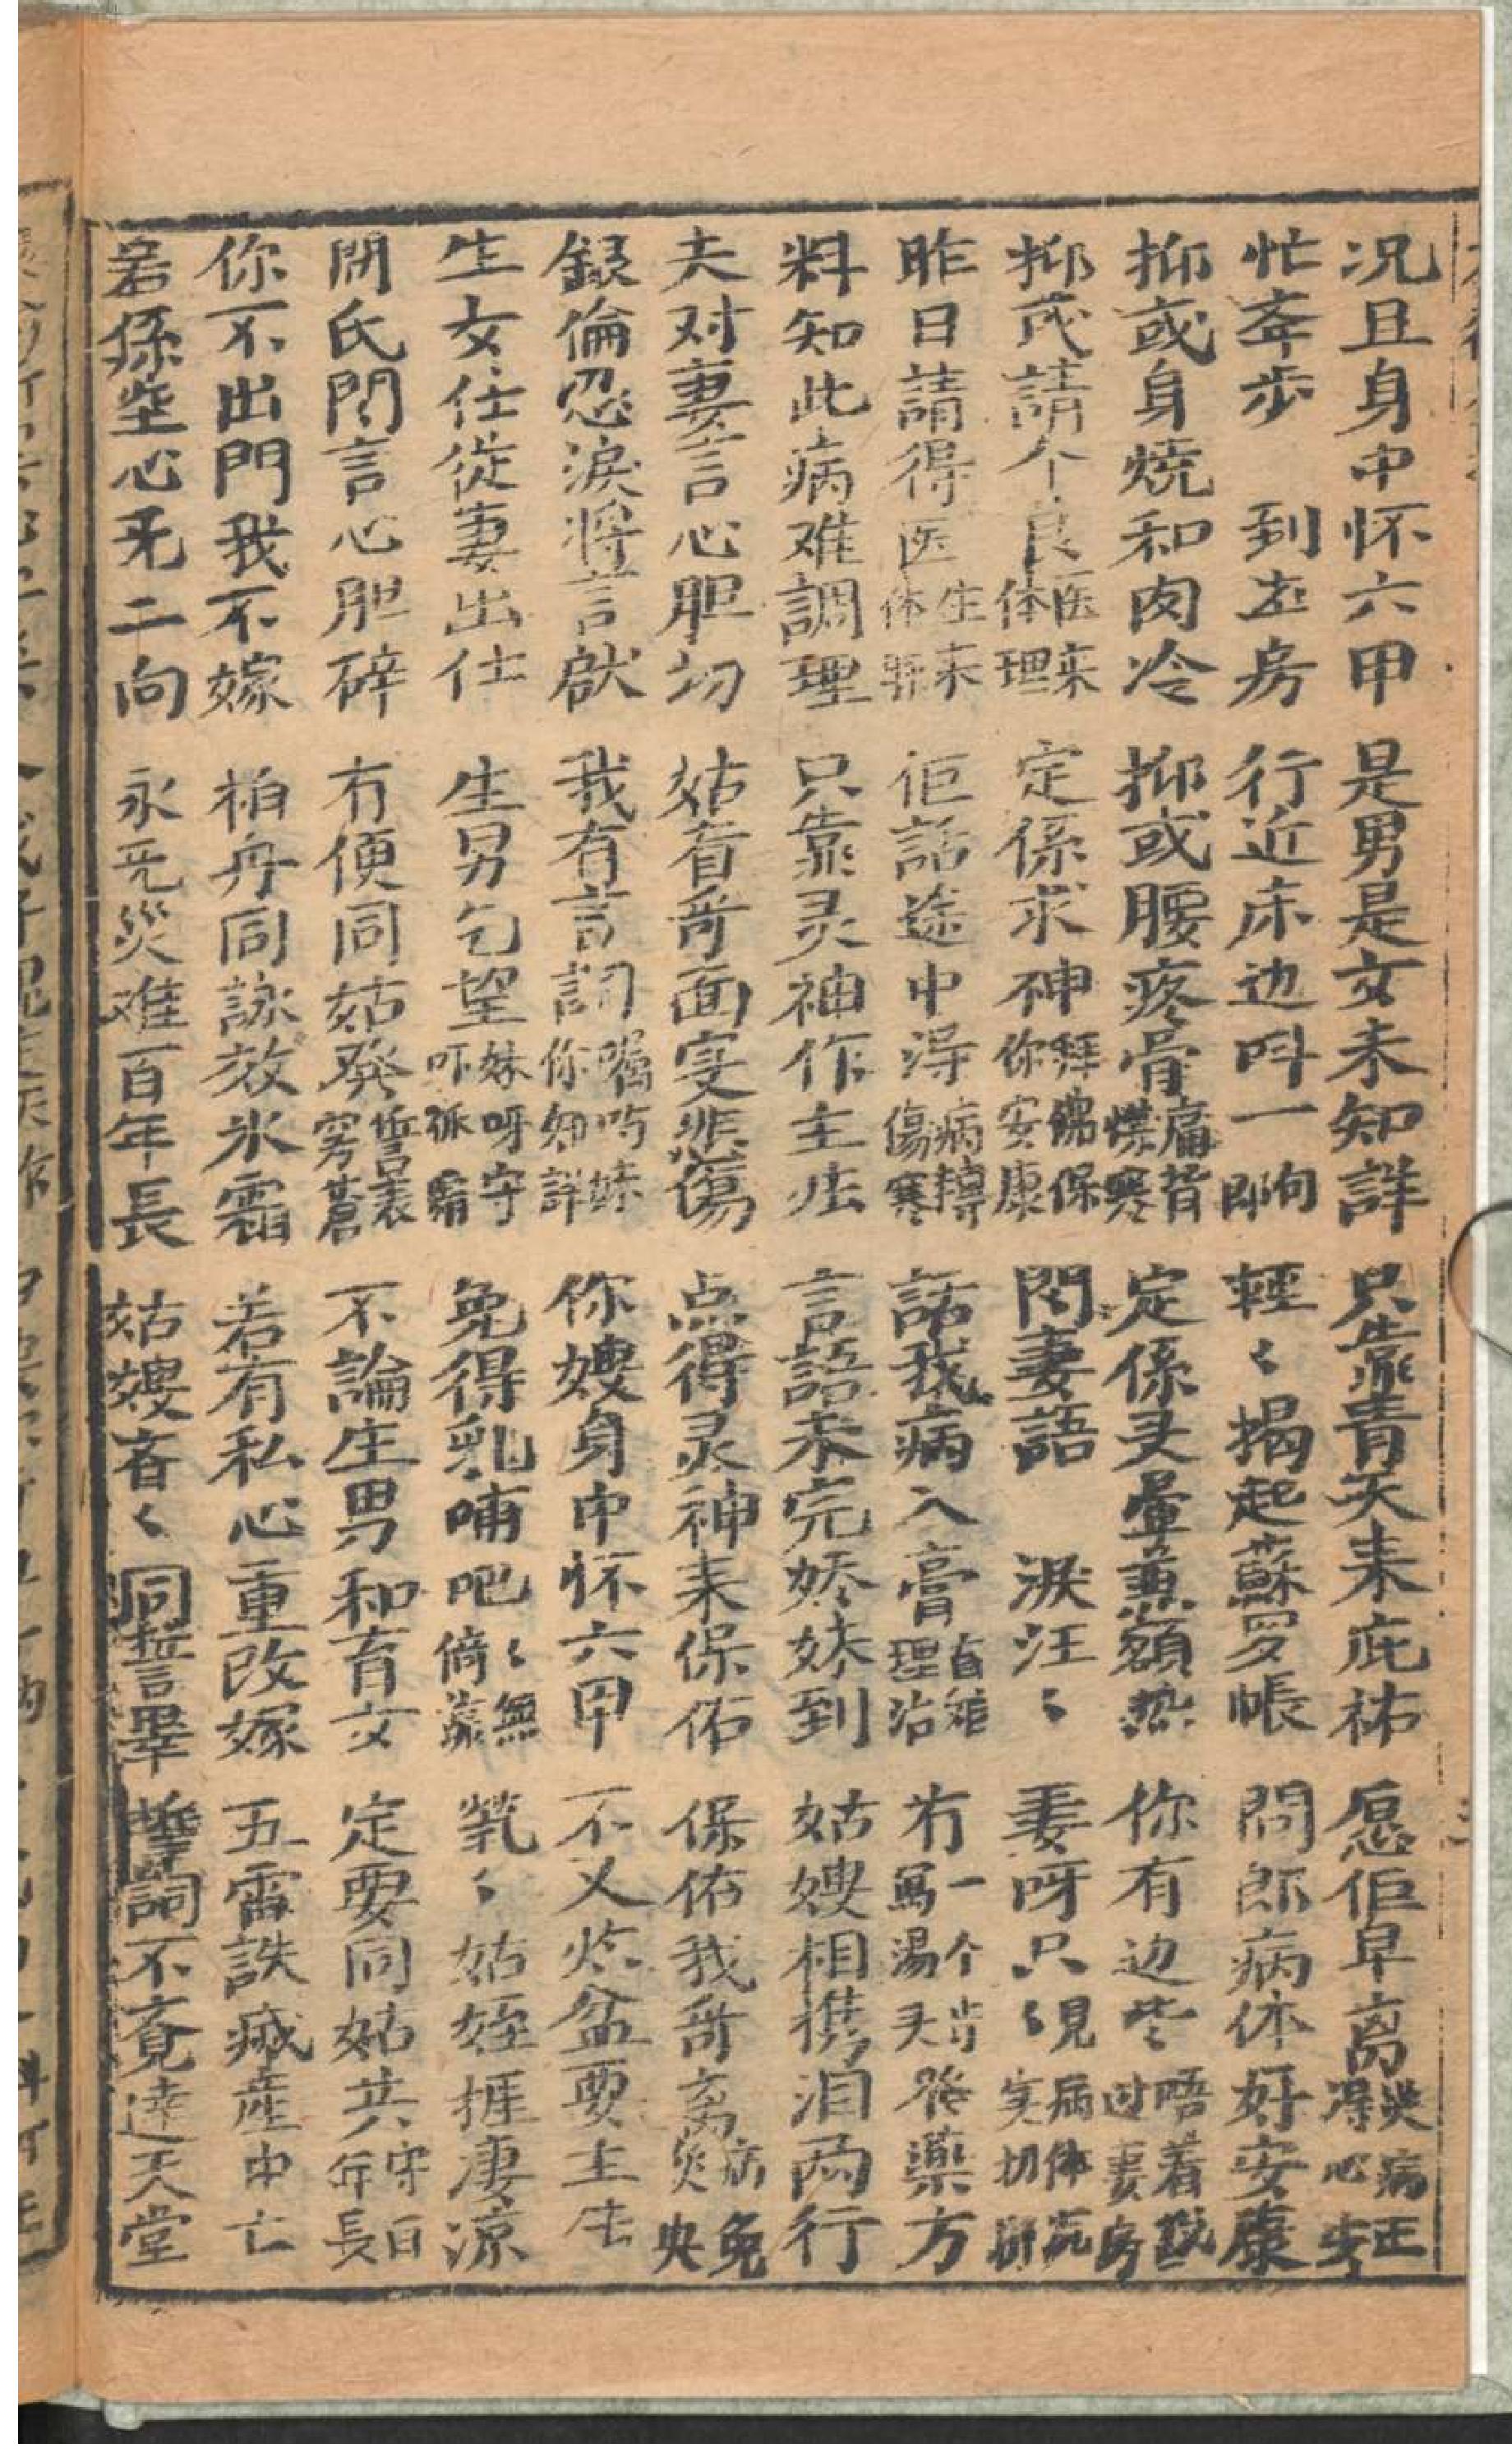 况且身中怀六甲 是男是女未知詳 只靠青天来庇祐 愿佢早离災病正得心安
忙奔步 到左房 行近床边呌一句郎 輕〻揭起蘇罗帳 問郎病体好安康
抑或身燒和肉冷 抑或腰疼骨痛背慌寒 定係头暈兼額热 你有边些唔着對过妻房
抑或請个良医来体理 定係求神拜佛保你安康 問妻語 淚汪〻 妻呀只見〻病体沉实切
昨日請得医生来体 佢話途中得病轉傷寒 話我病入膏自难理治 冇一个肯寫湯头發藥方
料知此病难調理 只靠灵神作主庄 言語未完娇妹到 姑嫂相携泪两行
夫对妻言心胆切 姑看哥面更悲傷 点得灵神来保佑 保佑我哥离病免災央
銀倫忍淚將言啟 我有言詞嘱吩妹你知詳 你嫂身中怀六甲 不久炏盆要主庄
生女任從妻出仕 生男乞望妹呀守吓孤霜 免得乳哺吧〻無倚靠 煢〻姑姪捱凄凉
開氏問言心胆碎 有便同姑發誓表穹蒼 不論庄男和育女 定要同姑共守百年長
你不出門我不嫁 柏舟同詠效氷霜 若有私心重改嫁 五雷誅滅産中亡
若係坚心旡二向 永旡災难百年長 姑嫂斉〻同誓畢 誓詞不覔達天堂